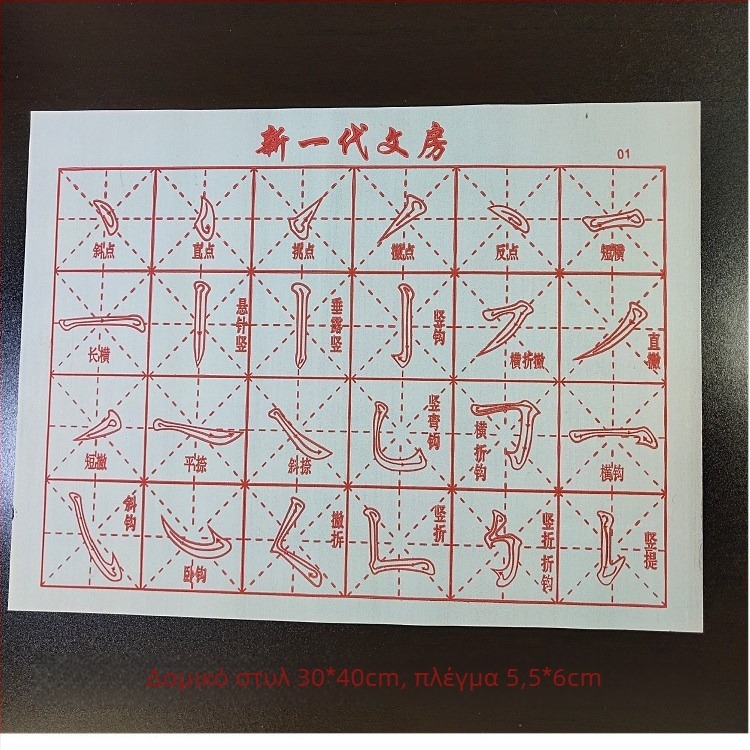 新一代文房
01
斜点 直点 挑点 撇点 反点 短横
长横 悬针竖 垂露竖 竖钩 横折撇 直撇
短撇 平捺 斜捺 竖弯钩 横折钩 横钩
斜钩 卧钩 撇折 竖折 竖折折钩 竖提
Δομικό στυλ 30*40cm, πλέγμα 5,5*6cm